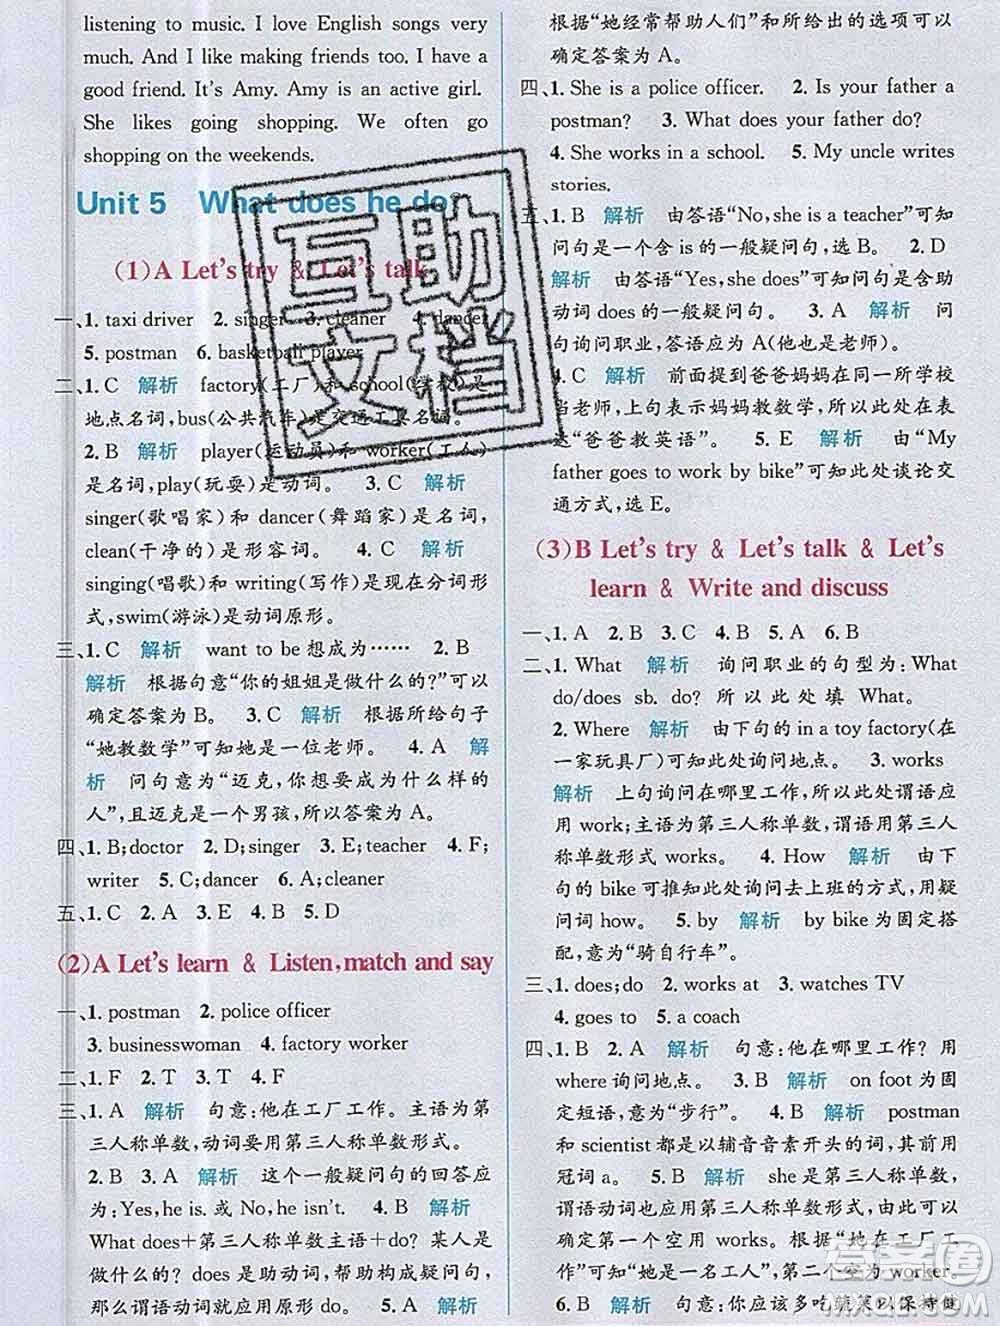 listening to music. I love English songs very
much. And I like making friends too. I have
a good friend. It's Amy. Amy is an active girl.
She likes going shopping. We often go
shopping on the weekends.
Unit 5 What does he do?
(1)A Let's try & Let's talk
一、1. taxi driver 2. singer 3. cleaner 4. dancer
5. postman 6. basketball player
二、1. C 解析 factory(工厂)和school(学校)是
地点名词，bus(公共汽车)是交通工具名词。
2. B 解析 player(运动员)和worker(工人)
是名词，play(玩耍)是动词。 3. C 解析
singer(歌唱家)和 dancer(舞蹈家)是名词，
clean(干净的)是形容词。 4. C 解析
singing(唱歌)和 writing(写作)是现在分词形
式，swim(游泳)是动词原形。
三、1. C 解析 want to be想成为…… 2. B
解析 根据句意“你的姐姐是做什么的?”可以
确定答案为 B。 3. C 解析 根据所给句子
“她教数学”可知她是一位老师。 4. A 解
析 问句意为“迈克想成为什么样的
人”，且迈克是一个男孩，所以答案为A。
四、1. B;doctor 2. D;singer 3. E;teacher 4. F;
writer 5. C;dancer 6. A;cleaner
五、1. C 2. A 3. E 4. B 5. D
(2)A Let's learn & Listen,match and say
一、1. postman 2. police officer
3. businesswoman 4. factory worker
二、1. F 2. T 3. T 4. F
三、1. A 解析 句意:他在工厂工作。主语为第
三人称单数，动词要用第三人称单数形式。
2. B 3. A 解析 这个一般疑问句的回答应
为:Yes,he is. 或 No,he isn't. 4. B 解析
What does+第三人称单数主语+do? 某人是
做什么的? does 是助动词，帮助构成疑问句，
那么谓语动词就应用原形 do。 5. A 解析
根据“她经常帮助人们”和所给出的选项可以
确定答案为 A。
四、1. She is a police officer. 2. Is your father a
postman? 3. What does your father do?
4. She works in a school. 5. My uncle writes
stories.
五、1. B 解析 由答语“No,she is a teacher”可知
问句是一个含 is的一般疑问句，选 B。 2. D
解析 由答语“Yes,she does”可知问句是含助
动词 does 的一般疑问句。 3. A 解析 问
句询问职业，答语应为 A(他也是老师)。
4. C 解析 前面提到爸爸妈妈在同一所学校
当老师，上句表示妈妈教数学，所以此处在表
达“爸爸教英语”。 5. E 解析 由“My
father goes to work by bike”可知此处谈论交
通方式，选 E。
(3)B Let's try & Let's talk & Let's
learn & Write and discuss
一、1. A 2. B 3. B 4. A 5. A 6. B
二、1. What 解析 询问职业的句型为:What
do/does sb. do? 所以此处填 What。
2. Where 解析 由下句的 in a toy factory(在
一家玩具厂)可知此处询问地点。 3. works
解析 上句询问在哪里工作，所以此处谓语应
用 work;主语为第三人称单数，谓语用第三人
称单数形式 works。 4. How 解析 由下
句的 bike 可推知此处询问去上班的方式，用疑
问词 how。 5. by 解析 by bike 为固定搭
配，意为“骑自行车”。
三、1. does;do 2. works at 3. watches TV
4. goes to 5. a coach
四、1. B 2. A 解析 句意:他在哪里工作? 用
where 询问地点。 3. B 解析 on foot 为固
定短语，意为“步行”。 4. B 解析 postman
和 scientist 都是以辅音音素开头的词，其前用
冠词 a。 5. A 解析 she 是第三人称单数，
谓语动词也应用第三人称单数形式，由此可
确定第一个空用 works。根据“她在工厂工
作”可知“她是一名工人”，第二个空为worker。
6. B 解析 句意:你应该多吃蔬菜以保持健
互助
文档
答案圈
MXQE.COM